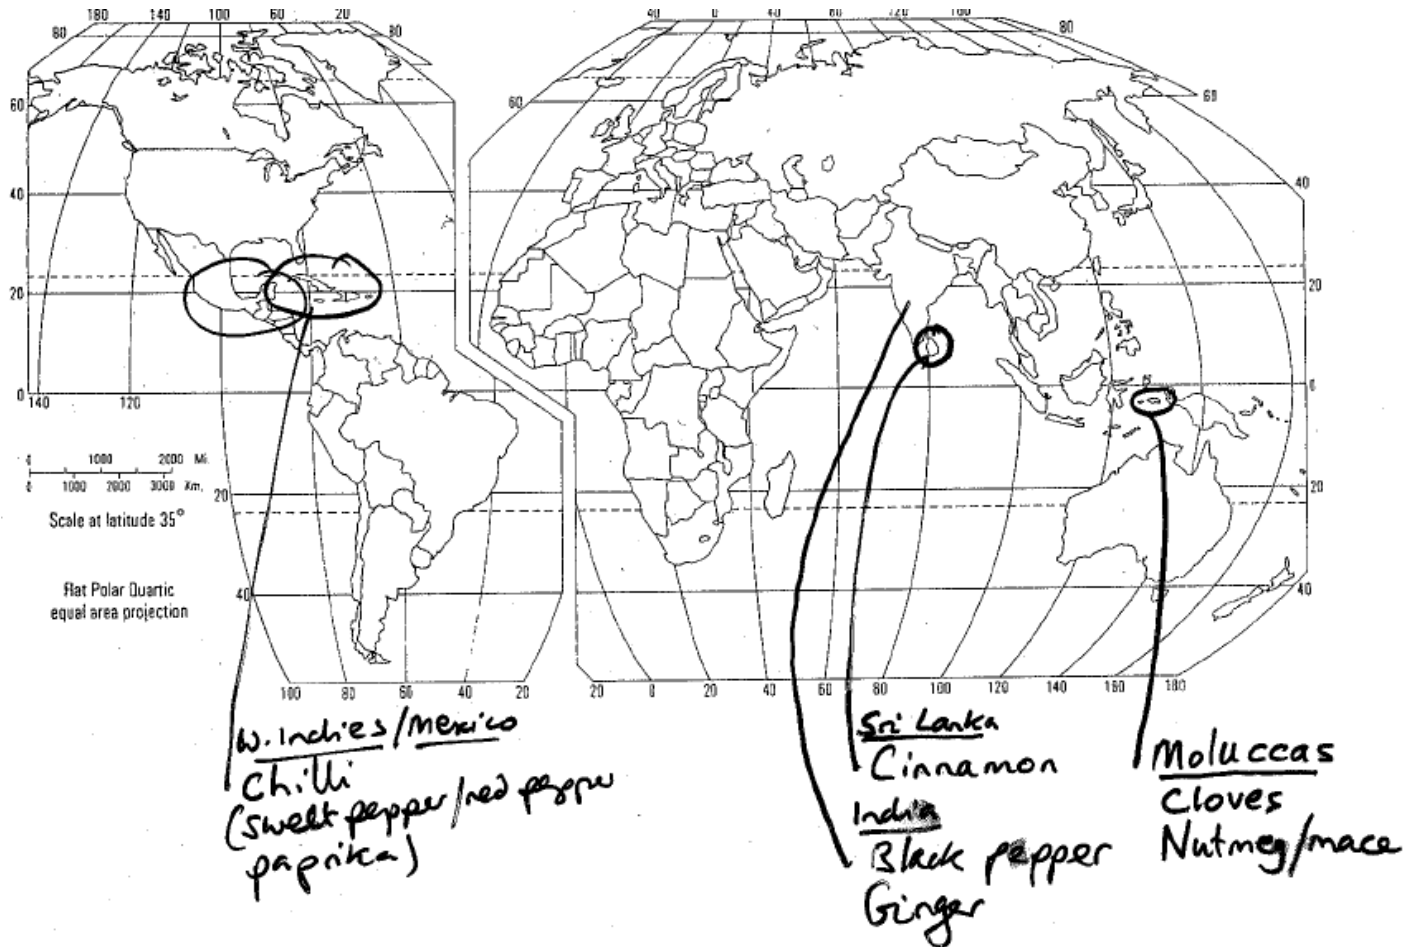 180 140 100 60 20
40 0 20 40 60 100
80 80 80
60 60 60
40 40
20 20
0 140 120 0
0 1000 2000 Mi.
0 1000 2000 3000 Km.
Scale at latitude 35°
20 20
Flat Polar Quartic
equal area projection
40 40
100 80 60 40 20
20 0 20 40 60 80 100 120 140 160 180
W. Indies/Mexico
Chilli
(sweet pepper/red pepper
paprika)
Sri Lanka
Cinnamon
India
Black pepper
Ginger
Moluccas
Cloves
Nutmeg/mace